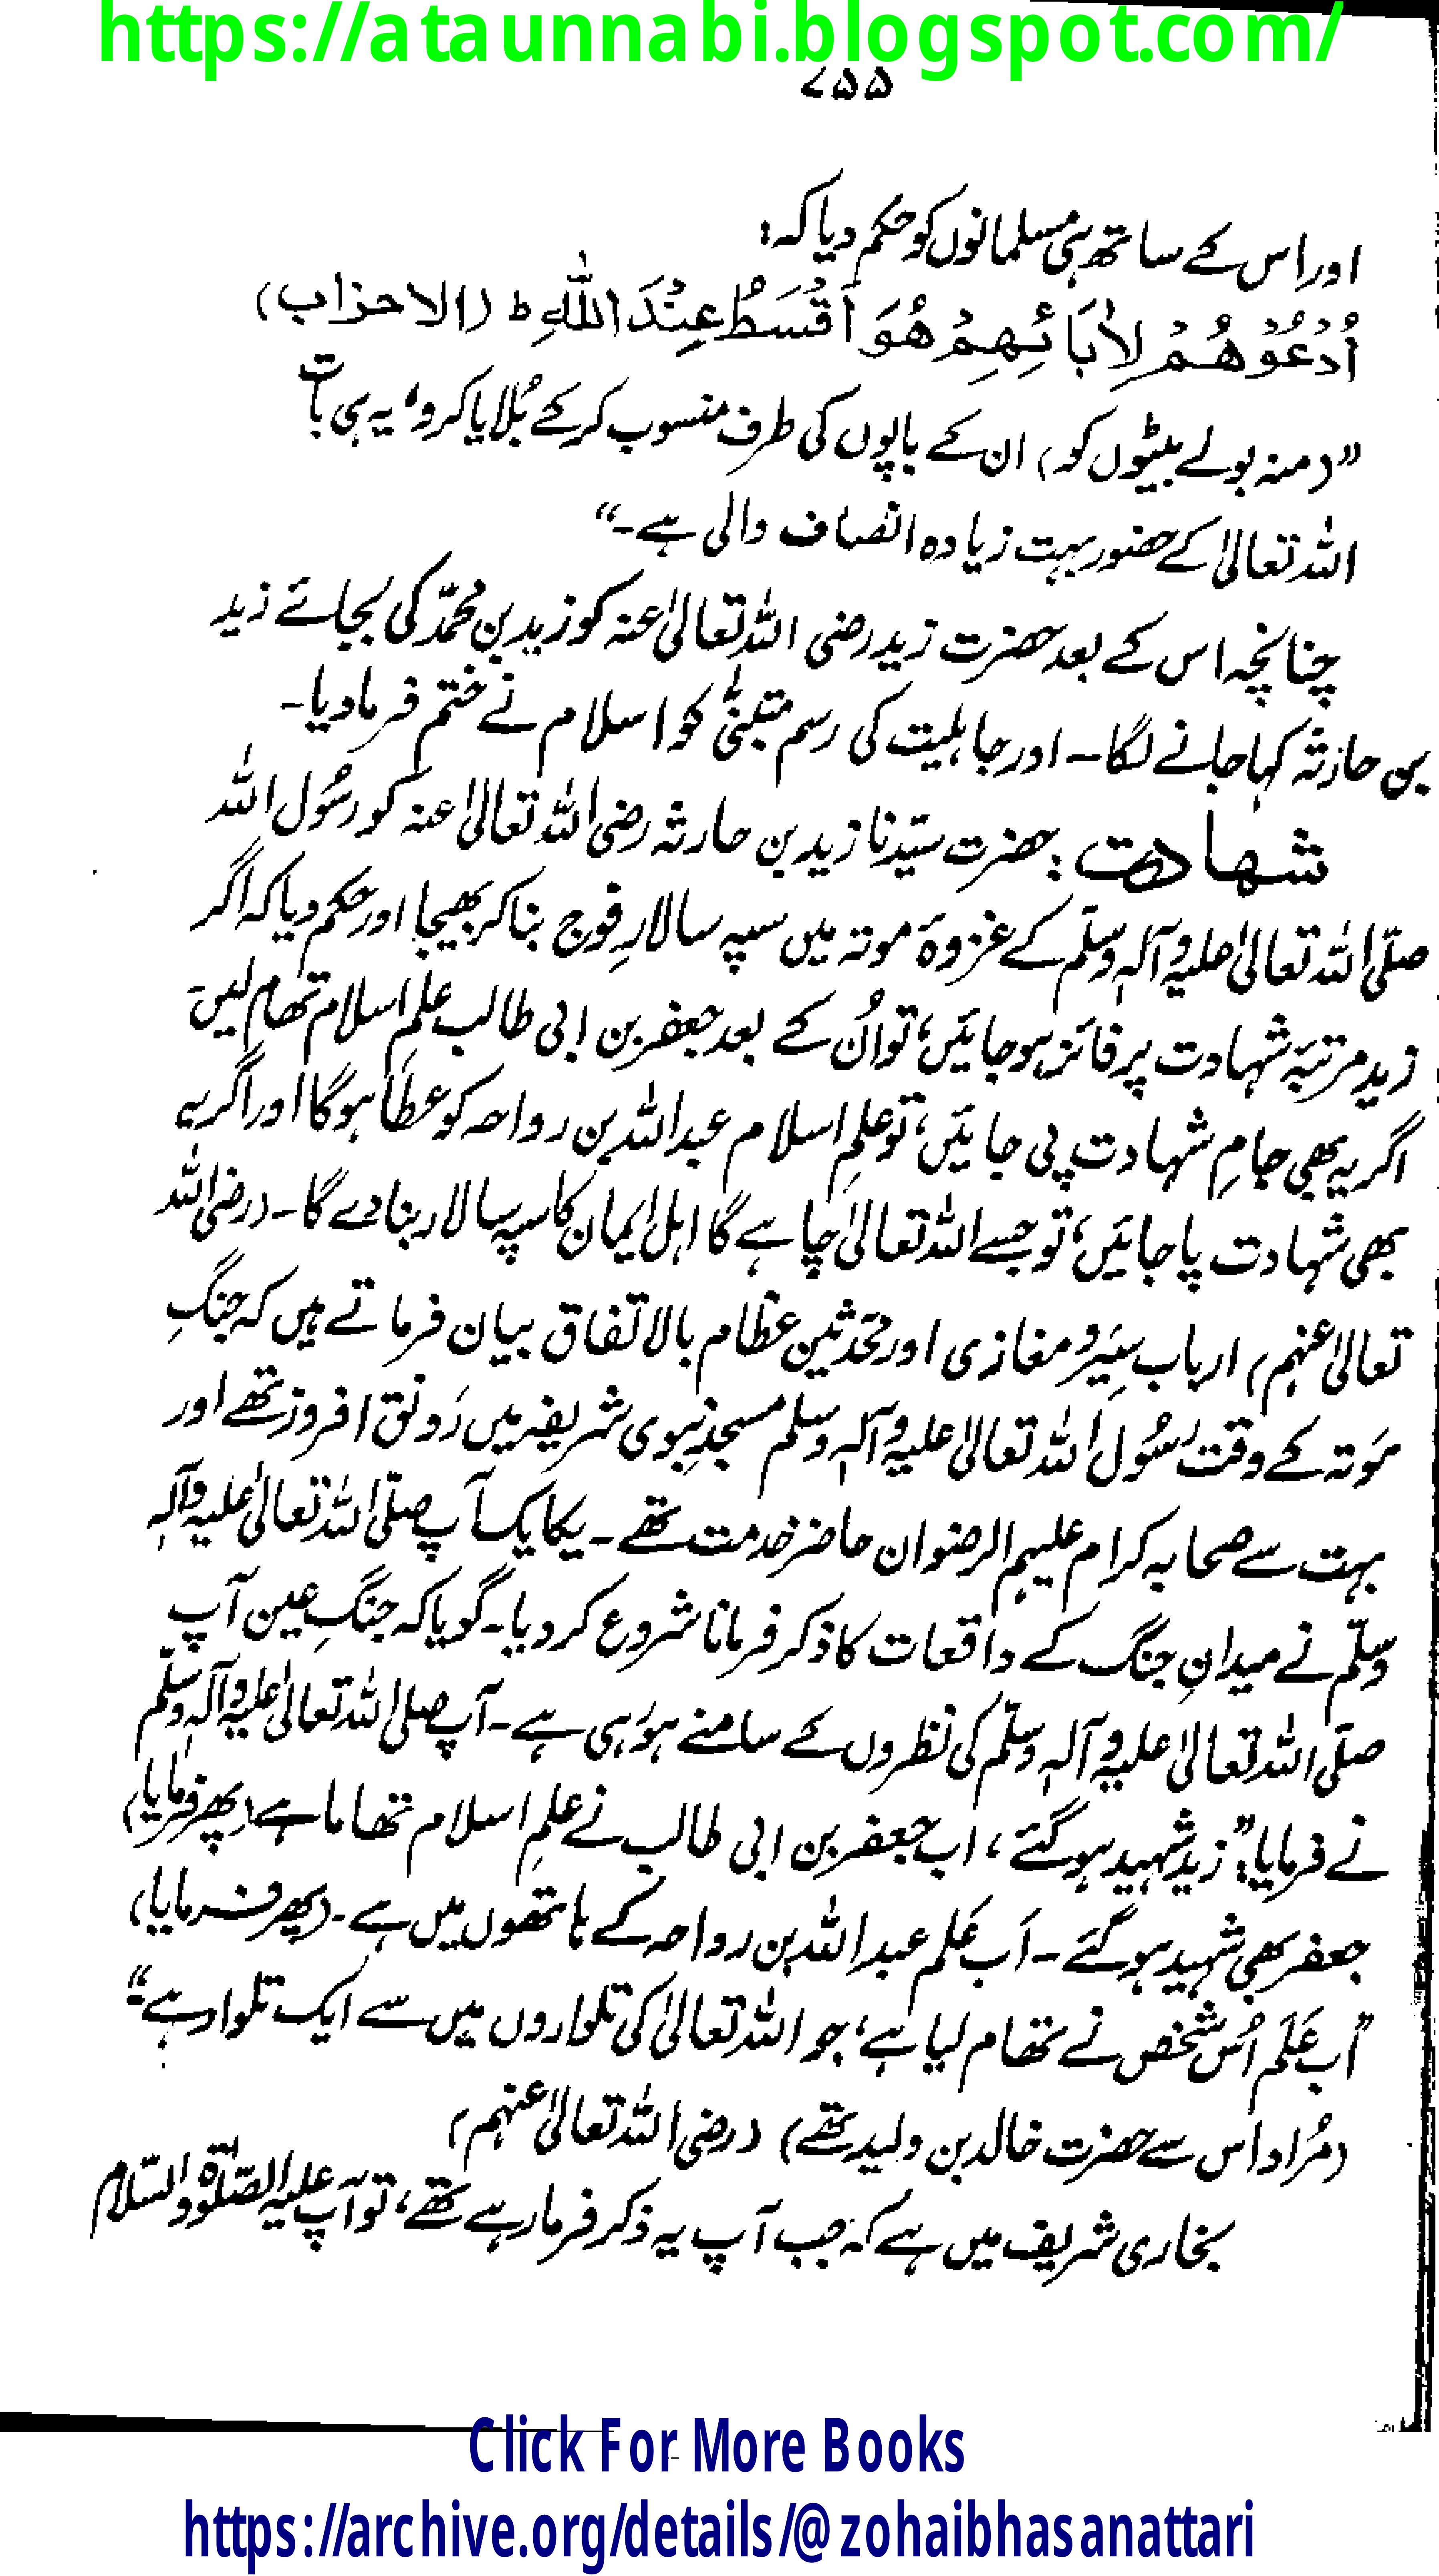 https://ataunnabi.blogspot.com/
۷۵۵
اور اس کے ساتھ ہی مسلمانوں کو حکم دیا کہ:
اُدْعُوْهُمْ لِاٰبَآئِهِمْ هُوَ اَقْسَطُ عِنْدَ اللّٰهِ ط (الاحزاب)
”(منہ بولے بیٹوں کو) ان کے باپوں کی طرف منسوب کر کے بُلایا کرو، یہ ہی بات
اللہ تعالیٰ کے حضور بہت زیادہ انصاف والی ہے۔“
چنانچہ اس کے بعد حضرت زید رضی اللہ تعالیٰ عنہ کو زید بن محمدّ کی بجائے زید
بن حارثہ کہا جانے لگا۔ اور جاہلیت کی رسم متبنّٰی کو اسلام نے ختم فرما دیا۔
شہادت: حضرت سیّدنا زید بن حارثہ رضی اللہ تعالیٰ عنہ کو رسُول اللہ
صلّی اللہ تعالیٰ علیہ و آلہٖ وسلّم کے غزوۂ موتہ میں سپہ سالارِ فوج بنا کر بھیجا اور حکم دیا کہ اگر
زید مرتبۂ شہادت پر فائز ہو جائیں، تو اُن کے بعد جعفر بن ابی طالب علمِ اسلام تھام لیں۔
اگر یہ بھی جامِ شہادت پی جائیں، تو علمِ اسلام عبداللہ بن رواحہ کو عطا ہوگا اور اگر یہ
بھی شہادت پا جائیں، تو جسے اللہ تعالیٰ چاہے گا اہل ایمان کا سپہ سالار بنا دے گا۔ (رضی اللہ
تعالیٰ عنہم) ارباب سِیَر و مغازی اور محدّثین عظام بالاتفاق بیان فرماتے ہیں کہ جنگِ
مَوتہ کے وقت رسُول اللہ تعالیٰ علیہ و آلہٖ وسلم مسجدِ نبوی شریفہ میں رَونق افروز تھے اور
بہت سے صحابہ کرام علیہم الرضوان حاضرِ خدمت تھے۔ یکایک آپ صلّی اللہ تعالیٰ علیہ و آلہٖ
وسلّم نے میدانِ جنگ کے واقعات کا ذکر فرمانا شروع کر دیا۔ گویا کہ جنگِ عین آپ
صلّی اللہ تعالیٰ علیہ و آلہٖ وسلّم کی نظروں کے سامنے ہو رہی ہے۔ آپ صلی اللہ تعالیٰ علیہ و آلہٖ وسلّم
نے فرمایا: ”زید شہید ہو گئے، اب جعفر بن ابی طالب نے علمِ اسلام تھاما ہے (پھر فرمایا)
جعفر بھی شہید ہو گئے۔ اَب عَلم عبداللہ بن رواحہ کے ہاتھوں میں ہے۔ (پھر فرمایا)
”اب عَلَم اُس شخص نے تھام لیا ہے، جو اللہ تعالیٰ کی تلواروں میں سے ایک تلوار ہے۔“
(مُراد اس سے حضرت خالد بن ولید تھے) (رضی اللہ تعالیٰ عنہم)
بخاری شریف میں ہے کہ جب آپ یہ ذکر فرما رہے تھے، تو آپ علیہ الصّلوٰۃ والسّلام
Click For More Books
https://archive.org/details/@zohaibhasanattari